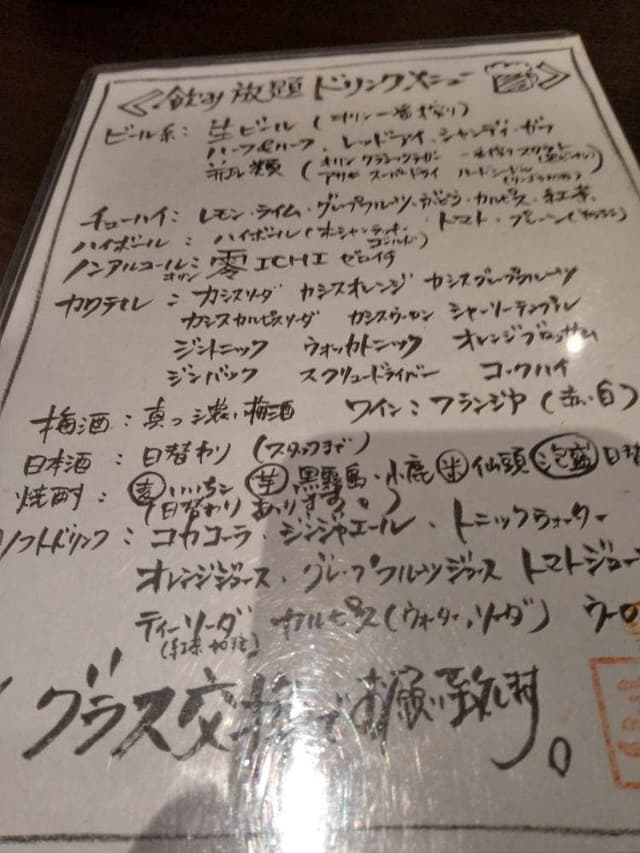 飲み放題ドリンクメニュー
ビール系: 生ビール(キリン一番搾り)
ハーフ&ハーフ・レッドアイ・シャンディ・ガフ
(キリン クラシックラガー 一番搾り
アサヒ スーパードライ
チューハイ: レモン・ライム・グレープフルーツ・ぶどう・カルピス・紅茶
トマト・プレーン
ハイボール: ハイボール
ノンアルコール: キリン 零ICHI ゼロイチ
カクテル: カシスソーダ カシスオレンジ カシスグレープフルーツ
カシスカルピスソーダ カシスウーロン シャーリーテンプル
ジントニック ウォッカトニック オレンジブロッサム
ジンバック スクリュードライバー コークハイ
梅酒: 真っ濃い梅酒 ワイン: フランジア(赤・白)
日本酒: 日替わり(スタッフまで)
焼酎: 麦 いいちこ 芋 黒霧島・小鹿 米 仙頭 泡盛 日替
(日替わりあります。)
ソフトドリンク: コカコーラ・ジンジャエール・トニックウォーター
オレンジジュース・グレープフルーツジュース トマトジュー
ティーソーダ カルピス(ウォーター、ソーダ) ウーロ
グラス交換でお願い致します。